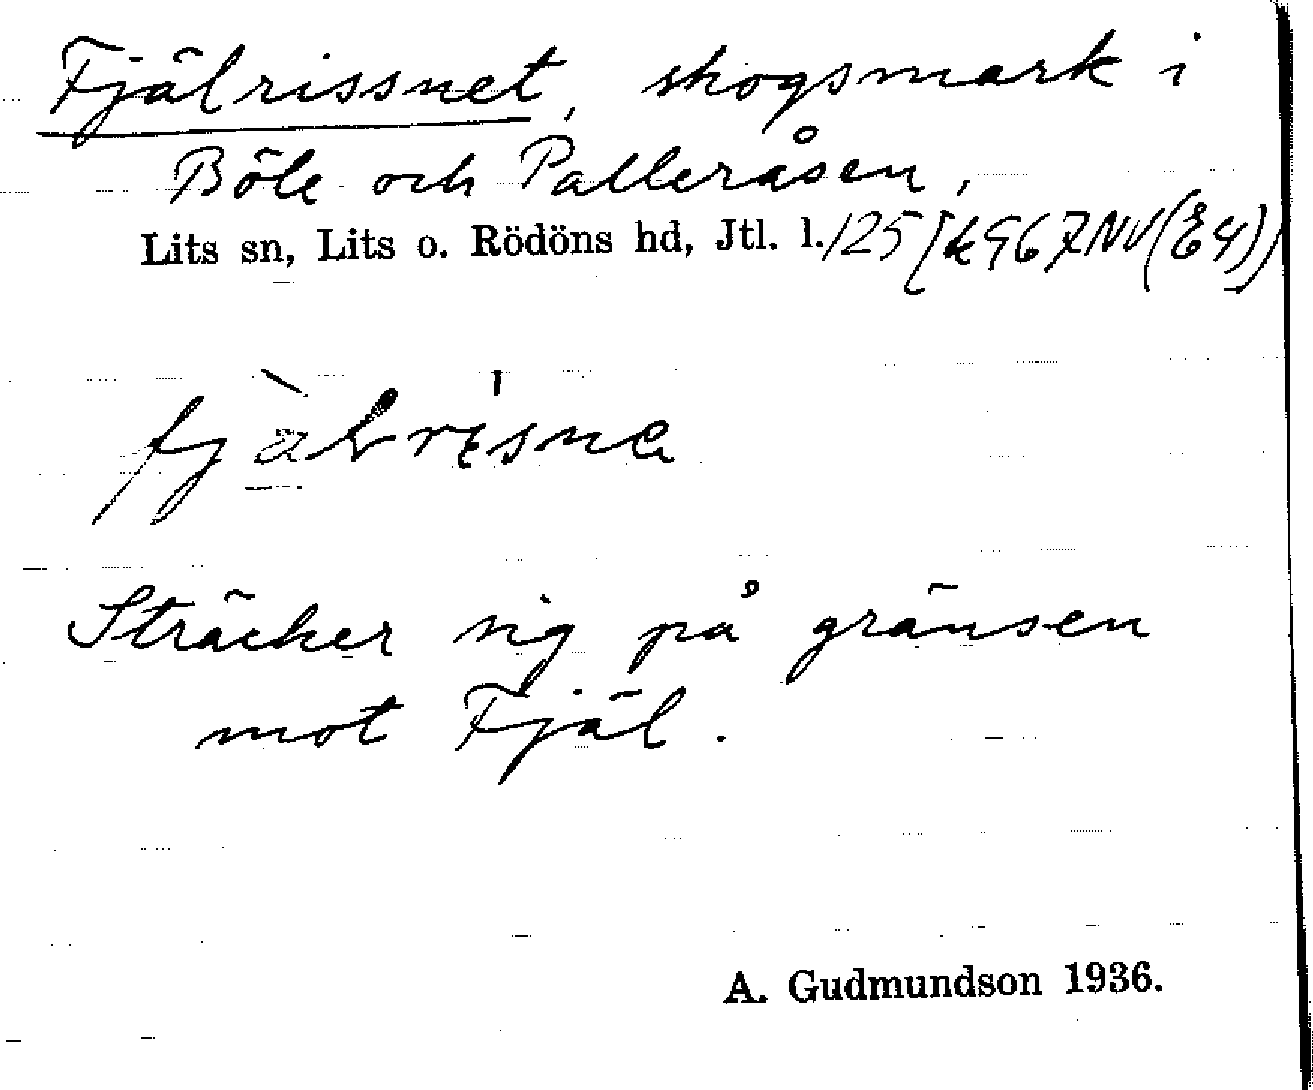 Fjälrissnet, skogsmark i
Böle och Palleråsen,
Lits sn, Lits o. Rödöns hd, Jtl. l./25
Sträcker sig på gränsen
mot Fjäl.
A. Gudmundson 1936.